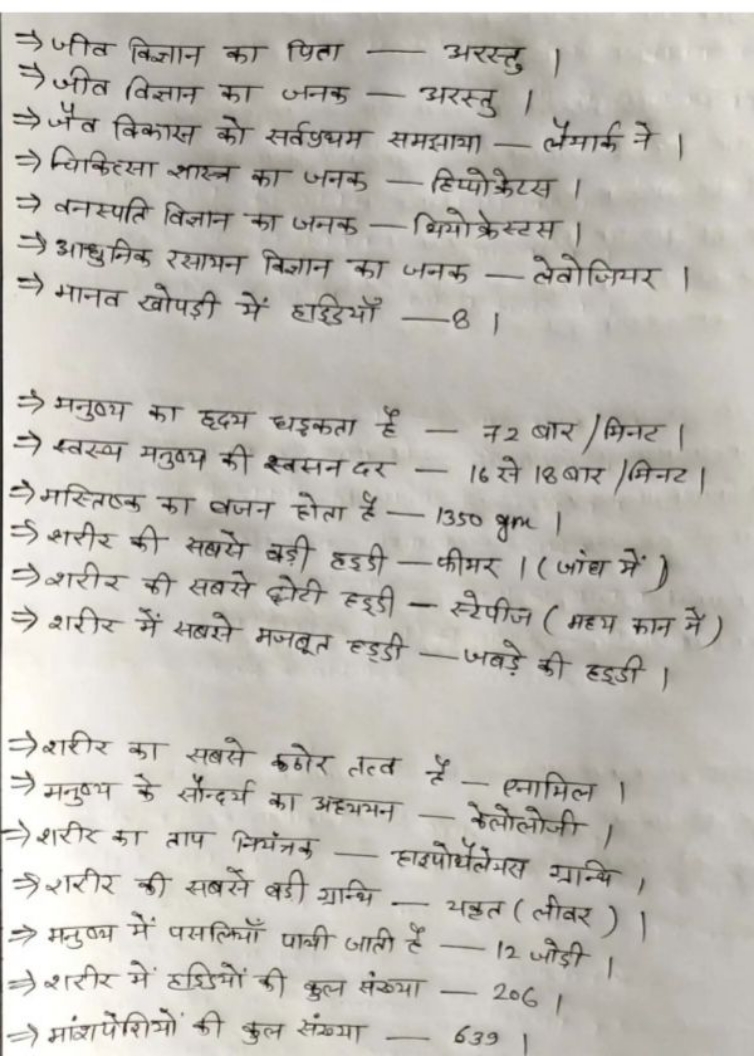 ⇒ जीव विज्ञान का पिता — अरस्तु ।
⇒ जीव विज्ञान का जनक — अरस्तु ।
⇒ जैव विकास को सर्वप्रथम समझाया — लैमार्क ने ।
⇒ चिकित्सा शास्त्र का जनक — हिप्पोक्रेटस ।
⇒ वनस्पति विज्ञान का जनक — थियोफ्रेस्टस ।
⇒ आधुनिक रसायन विज्ञान का जनक — लेवोजियर ।
⇒ मानव खोपड़ी में हड्डियाँ — 8 ।
⇒ मनुष्य का हृदय धड़कता है — 72 बार / मिनट ।
⇒ स्वस्थ मनुष्य की श्वसन दर — 16 से 18 बार / मिनट ।
⇒ मस्तिष्क का वजन होता है — 1350 gm ।
⇒ शरीर की सबसे बड़ी हड्डी — फीमर । ( जांघ में )
⇒ शरीर की सबसे छोटी हड्डी — स्टेपीज ( मध्य कान में )
⇒ शरीर में सबसे मजबूत हड्डी — जबड़े की हड्डी ।
⇒ शरीर का सबसे कठोर तत्व है — एनामिल ।
⇒ मनुष्य के सौन्दर्य का अध्ययन — केलोलोजी ।
⇒ शरीर का ताप नियंत्रक — हाइपोथैलेमस ग्रान्थि ।
⇒ शरीर की सबसे बडी ग्रान्थि — यकृत ( लीवर ) ।
⇒ मनुष्य में पसलियाँ पायी जाती है — 12 जोड़ी ।
⇒ शरीर में हड्डियों की कुल संख्या — 206 ।
⇒ मांशपेशियों की कुल संख्या — 639 ।